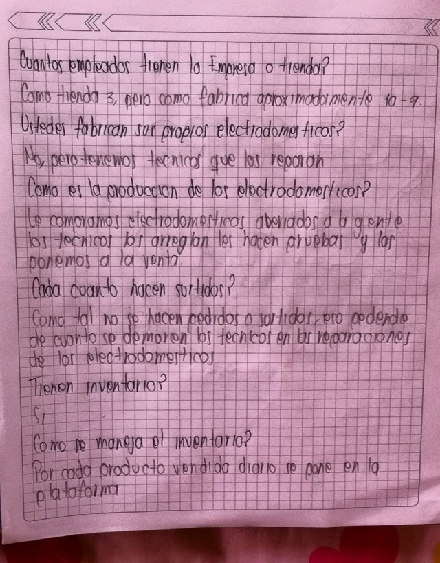 Cuantos empleados tienen la Empresa o tienda?
Como tienda 3, pero como fabrica aproximadamente 10-9.
Ustedes fabrican sus propios electrodomesticos?
No, pero tenemos tecnicos que los reparan
Como es la produccion de los electrodomesticos?
Le compramos electrodomesticos aberiados a la gente
los tecnicos los arreglan les hacen pruebas y los
ponemos a la venta.
Cada cuanto hacen surtidos?
Como tal no se hacen pedidos o surtidos, eso depende
de cuanto se demoren los tecnicos en las reparaciones
de los electrodomesticos
Tienen inventario?
Si
Como se maneja el inventario?
Por cada producto vendido diario se pone en la
plataforma